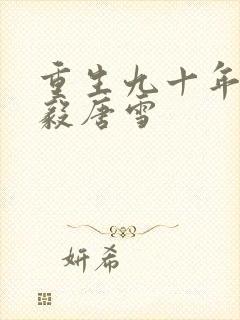 重生九十年
毅唐雪
妍希